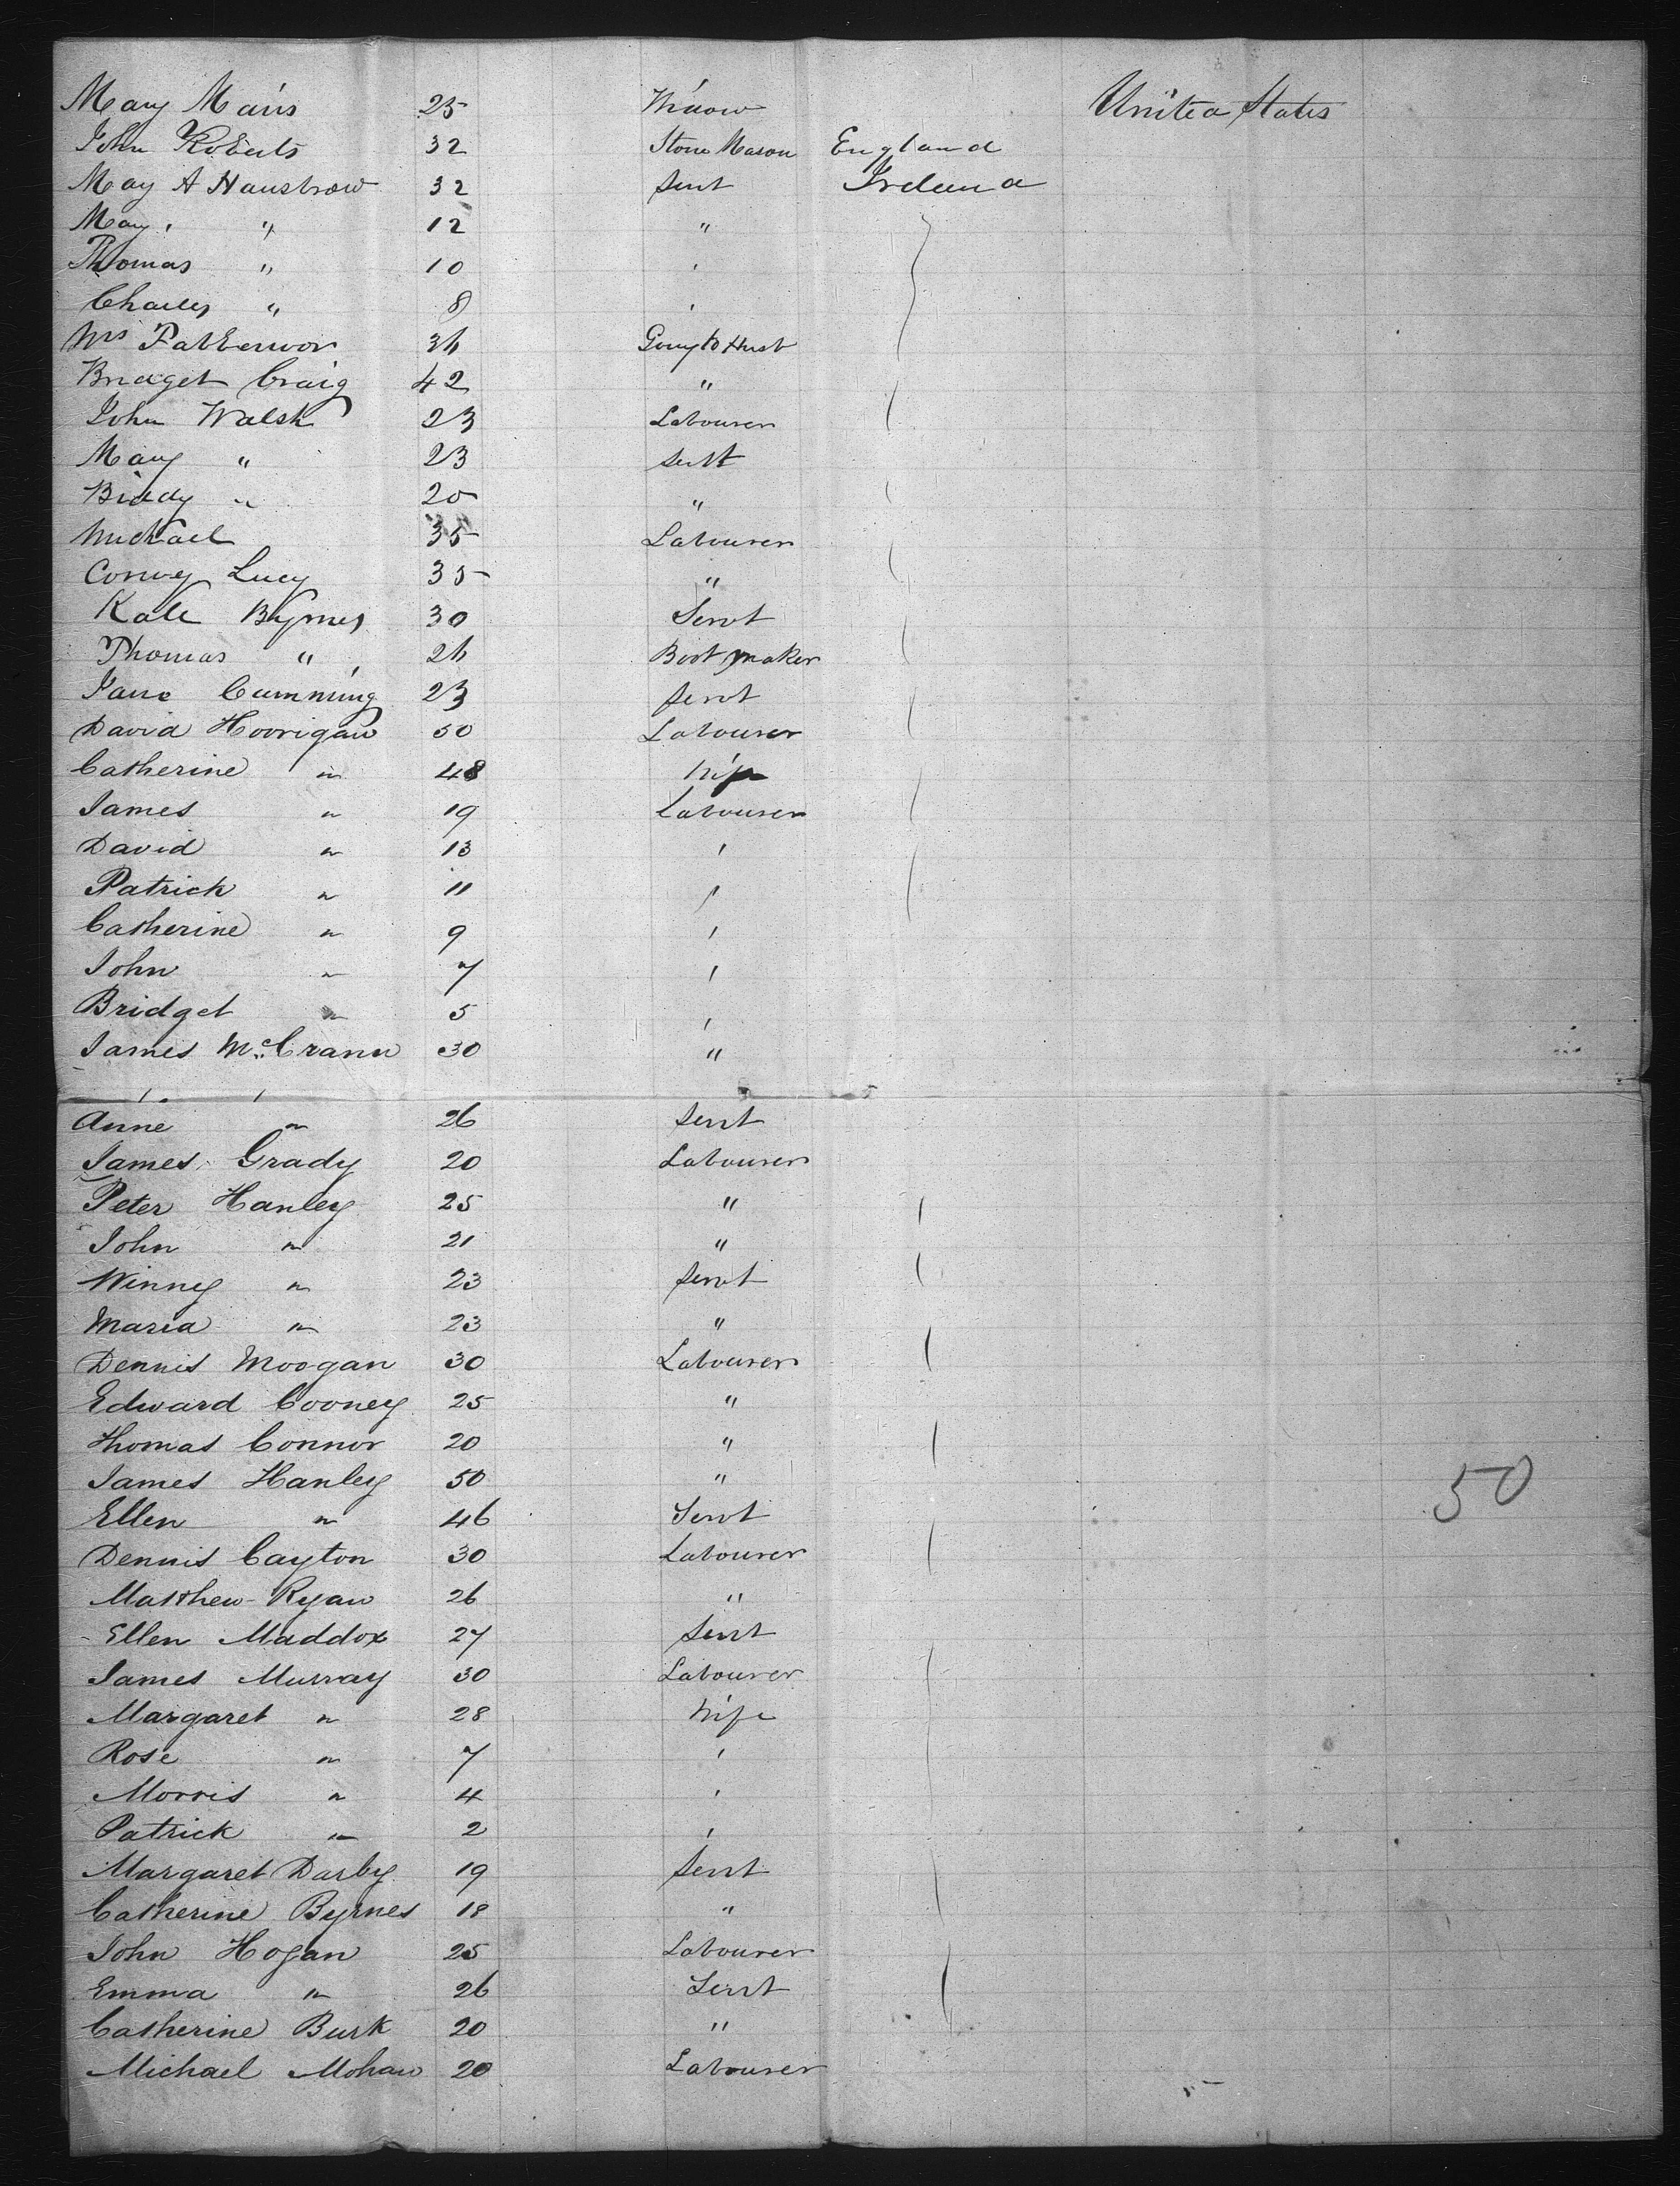 Mary Mains 25 Widow United States
John Roberts 32 Stone Mason England
May A Hanstrow 32 Servt Ireland
May " 12 "
Thomas " 10 '
Charles " 8 '
Mrs 36 Going to Husb
Bridget Craig 42 "
John Walsh 23 Labourer
Mary " 23 Servt
Biddy " 20 "
Michael 35 Labourer
Conroy Lucy 35 "
Kate Byrnes 30 Servt
Thomas " 26 Boot maker
Jane Cumming 23 Servt
David Hoorigan 50 Labourer
Catherine " 48 Wife
James " 19 Labourer
David " 13 '
Patrick " 11 '
Catherine " 9 '
John " 7 '
Bridget " 5 '
James McCrann 30 "
Anne " 26 Servt
James Grady 20 Labourer
Peter Hanley 25 "
John " 21 "
Winney " 23 Servt
Maria " 23 "
Dennis Moogan 30 Labourer
Edward Cooney 25 "
Thomas Connor 20 "
James Hanley 50 "
50
Ellen " 46 Servt
Dennis Cayton 30 Labourer
Matthew Ryan 26 "
Ellen Maddox 27 Servt
James Murray 30 Labourer
Margaret " 28 Wife
Rose " 7 '
Morris " 4 '
Patrick " 2 '
Margaret Darby 19 Servt
Catherine Byrnes 18 "
John Hogan 25 Labourer
Emma " 26 Servt
Catherine Burk 20 "
Michael Mohan 20 Labourer